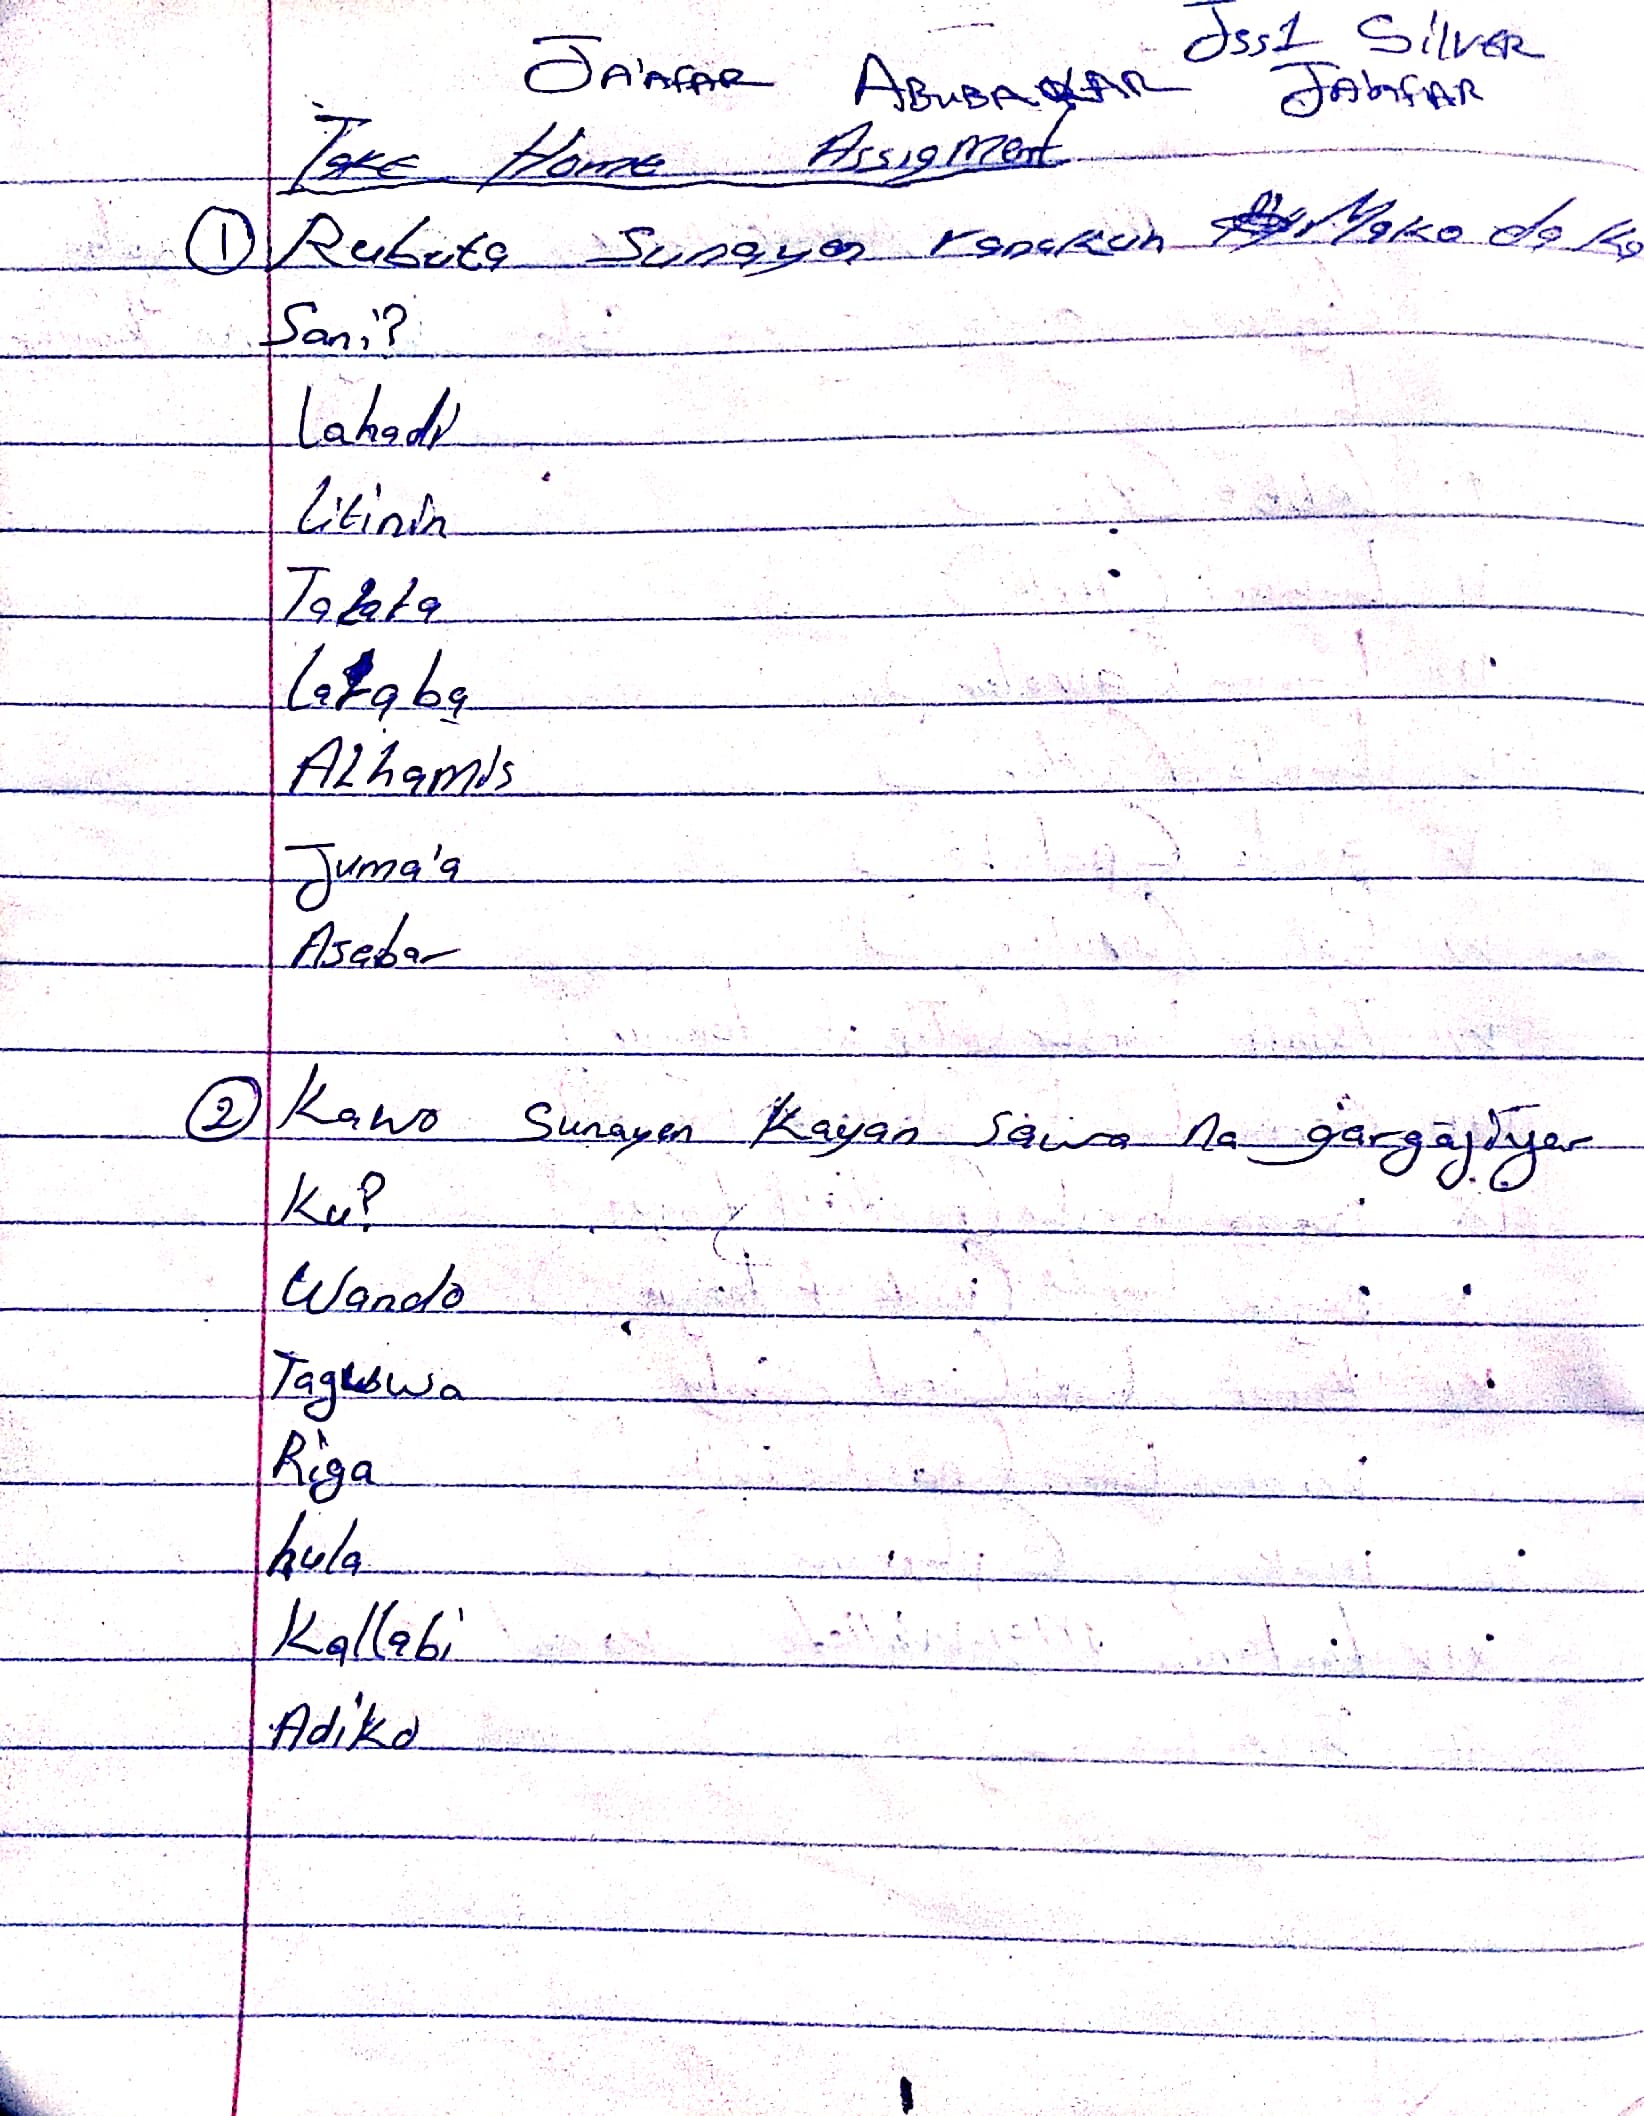 Jss1 Silver
Ja'afar Abubakar Ja'afar
Take Home Assigment
① Rubuta Sunayen ranakun Mako da ka
Sani?
Lahadi
Litinin
Talata
Laraba
Alhamis
Juma'a
Asabar
② Kawo Sunayen Kayan Sawa na gargajiyar
Ku?
Wando
Taguwa
Riga
hula
Kallabi
Adiko